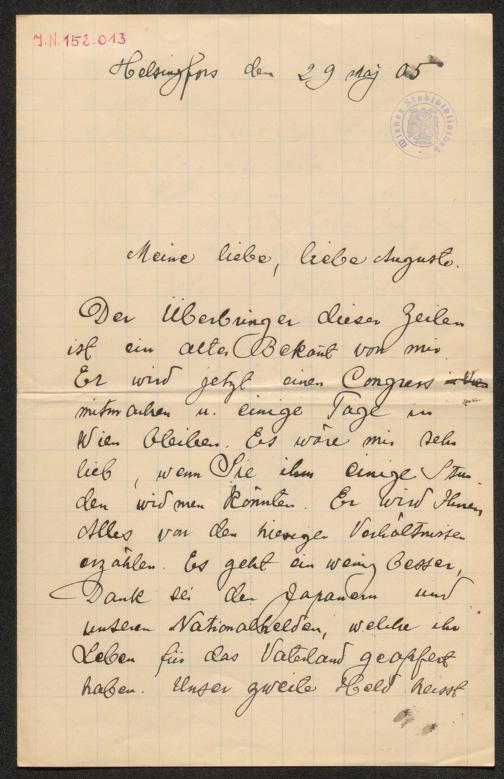 J.N. 152.013
Helsingfors den 29 Maj 05
Wiener Stadtbibliothek
Meine liebe, liebe Auguste.
Der Überbringer dieser Zeilen
ist ein alter Bekant von mir
Er wird jetzt einen Congress
mitmachen u. einige Tage in
Wien bleiben. Es wäre mir sehr
lieb, wenn Sie ihm einige Stun
den widmen könnten. Er wird Ihnen
Alles von den hiesigen Verhältnissen
erzählen. Es geht ein wenig besser,
Dank sei den Japanern und
unseren Nationalhelden, welche ihr
Leben für das Vaterland geopfert
haben. Unser zweite Held heisst